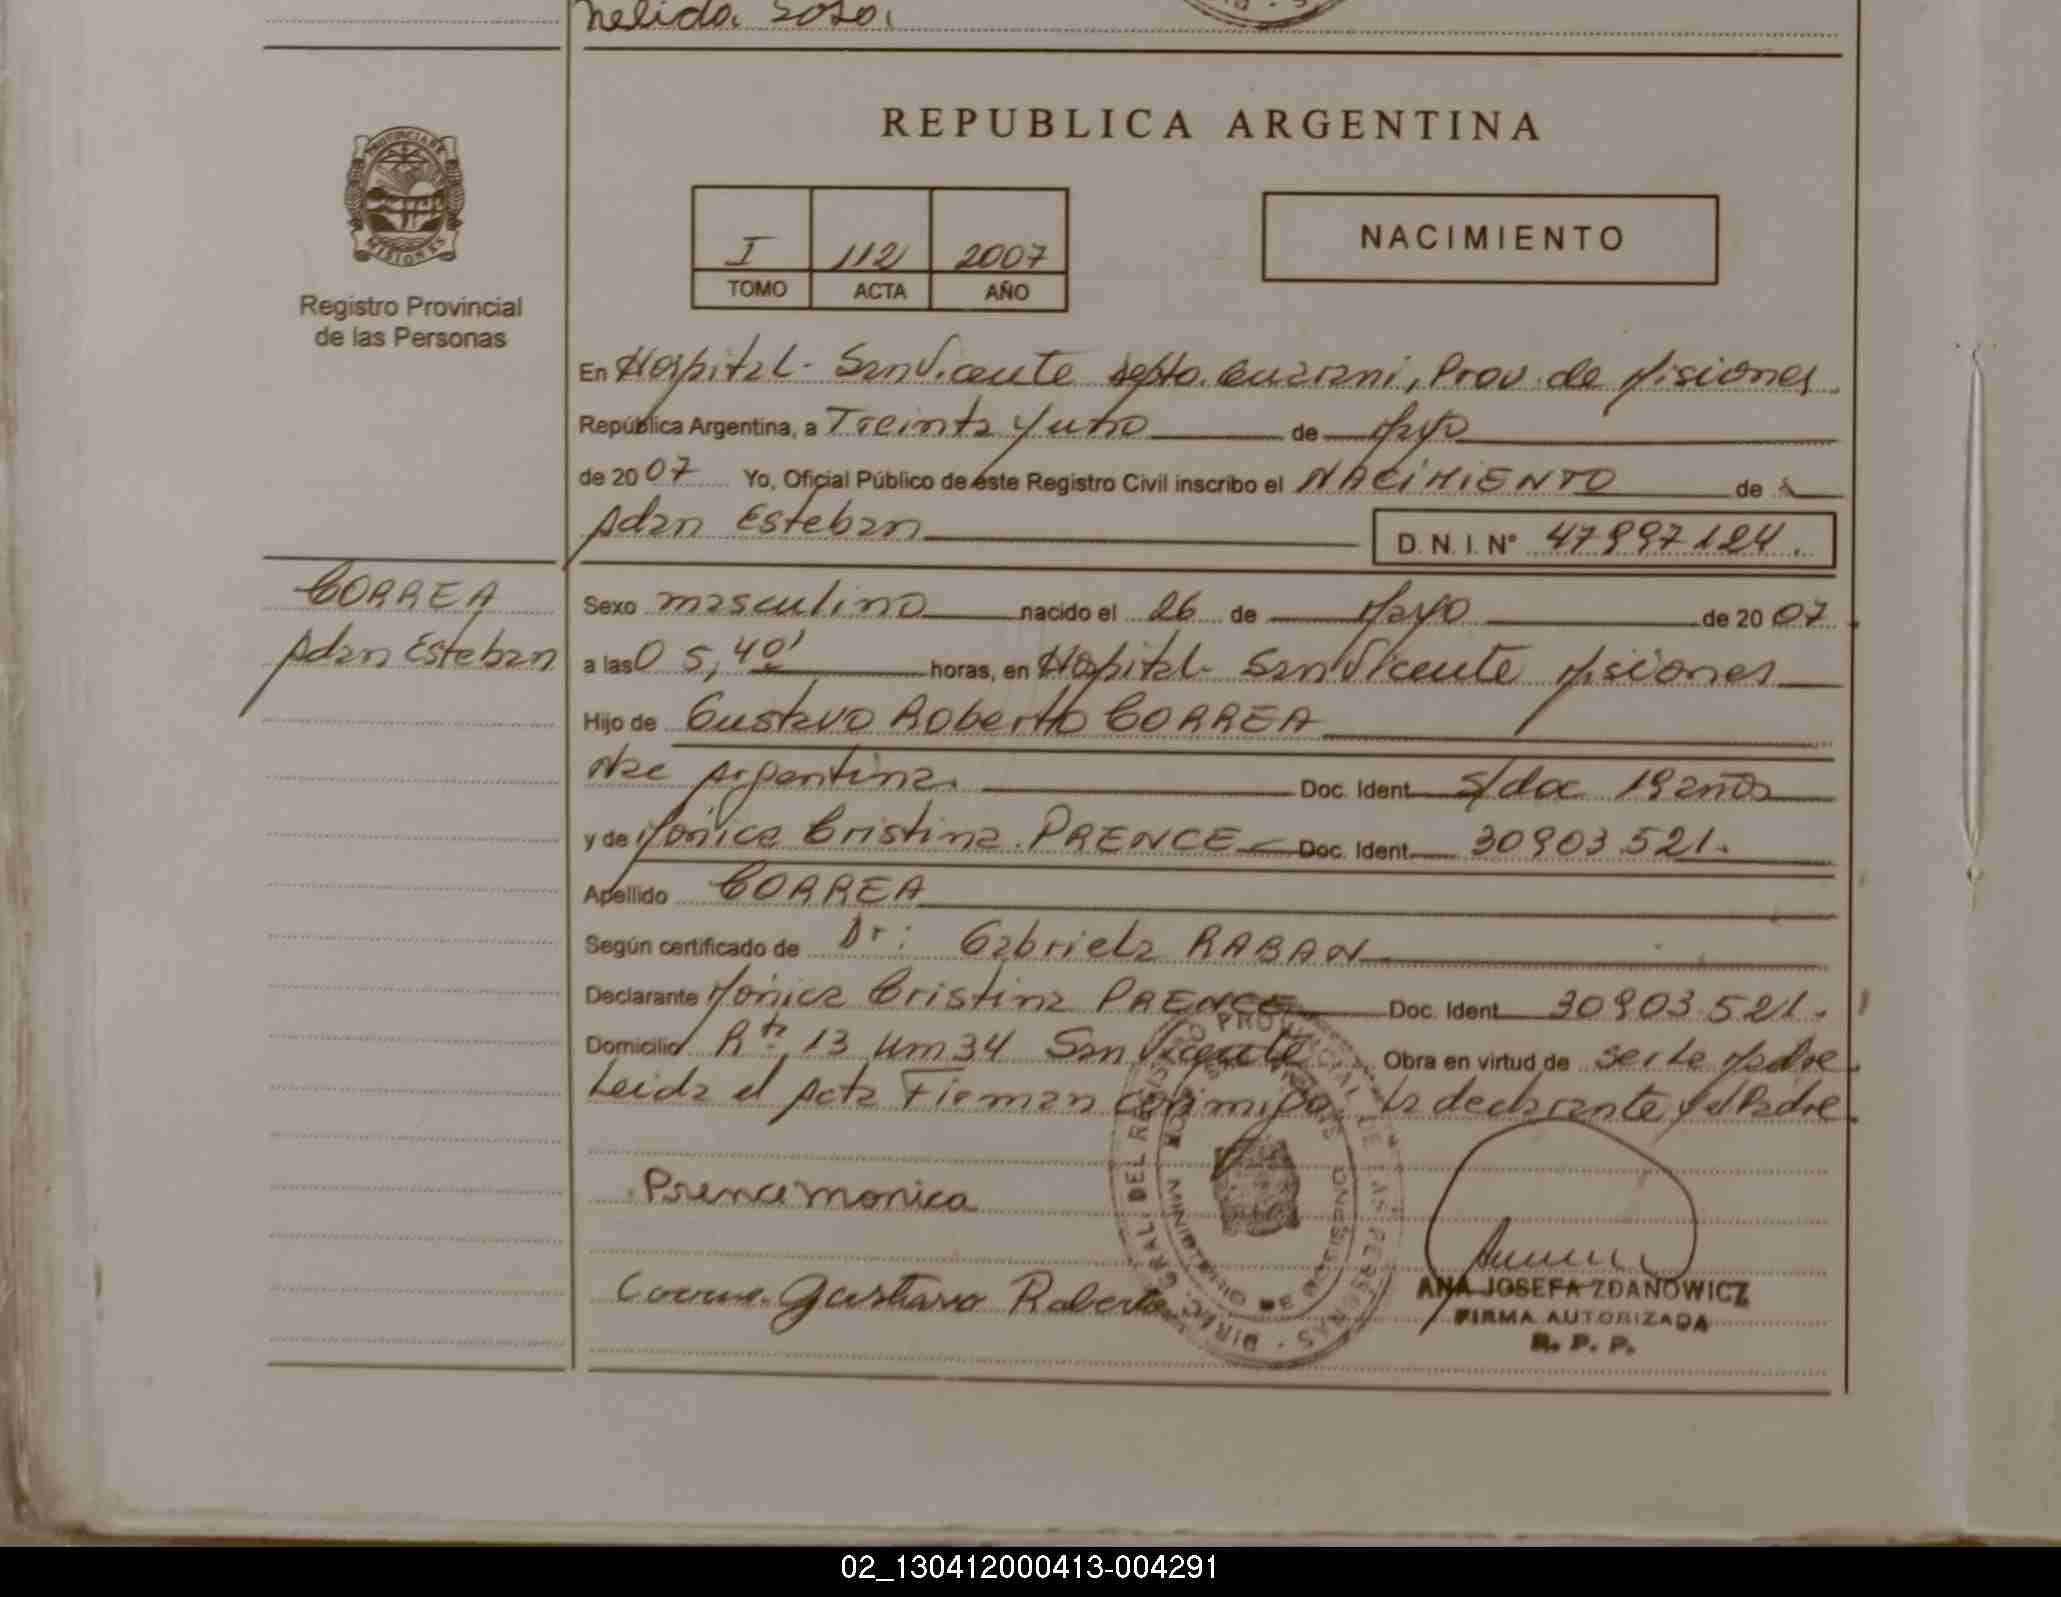 Nelida Sosa.
REPUBLICA ARGENTINA
PROVINCIA DE
MISIONES
Registro Provincial
de las Personas
I 112 2007
TOMO ACTA AÑO
NACIMIENTO
En Hospital - San Vicente Depto. Guarani, Prov. de Misiones
República Argentina, a Treinta y uno de Mayo
de 2007 Yo, Oficial Público de este Registro Civil inscribo el NACIMIENTO de
Adan Esteban D. N. I. Nº 47997124.
CORREA
Adan Esteban
Sexo masculino nacido el 26 de Mayo de 2007
a las 05,40' horas, en Hospital San Vicente Misiones
Hijo de Gustavo Roberto CORREA
Nac Argentina. Doc. Ident. s/doc 19 años
y de Mónica Cristina PRENCE Doc. Ident. 30903521.
Apellido CORREA
Según certificado de Dr: Gabriela RABAN
Declarante Mónica Cristina PRENCE Doc. Ident. 30903521.
Domicilio Rta 13 Km 34 San Vicente Obra en virtud de ser la Madre
Leida el Acta Firman conmigo la declarante y el Padre
Prence monica
Correa Gustavo Roberto
DIREC. GRAL. DEL REGISTRO PROVINCIAL DE LAS PERSONAS
ANA JOSEFA ZDANOWICZ
FIRMA AUTORIZADA
R. P. P.
02_130412000413-004291